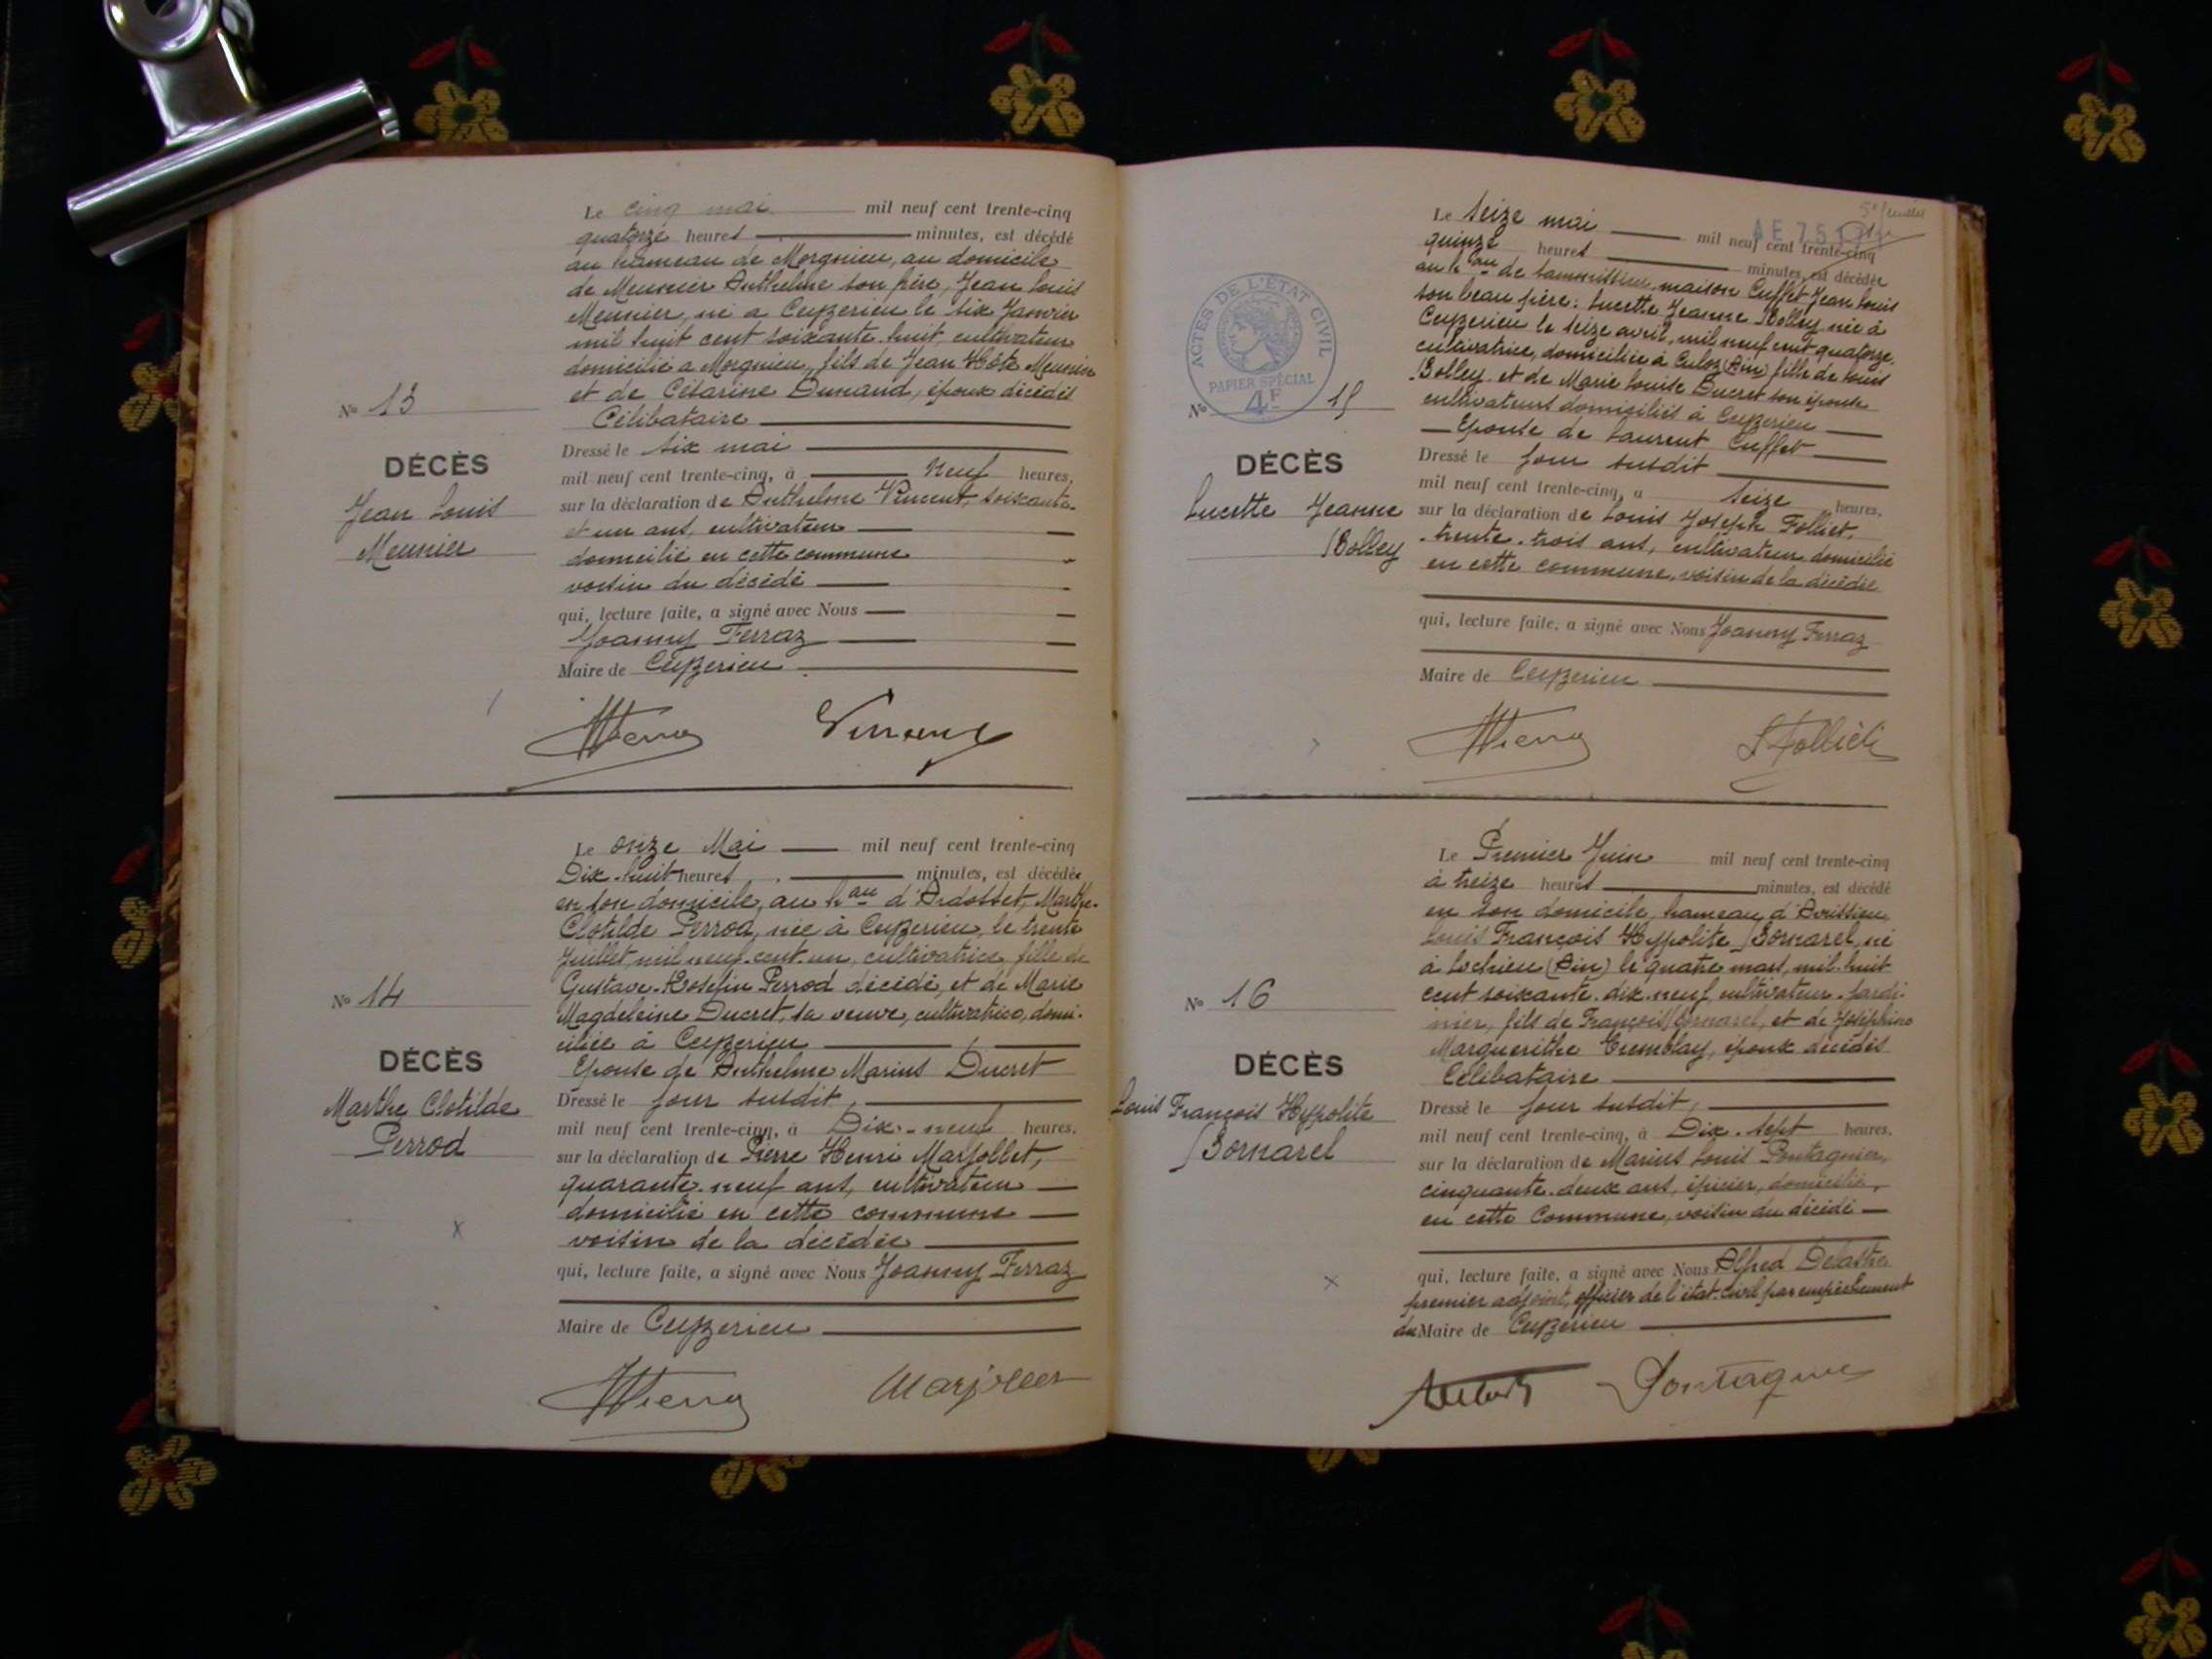 Le cinq mai mil neuf cent trente-cinq
quatorze heures minutes, est décédé
au hameau de Morgnieu, au domicile
de Meunier Anthelme son frère, Jean Louis
Meunier, né a Ceyzerieu le six Janvier
mil huit cent soixante-huit, cultivateur
domicilié a Morgnieu, fils de Jean Meunier
et de Césarine Dunand, époux décédés
Célibataire
No 13
DÉCÈS
Jean Louis
Meunier
Dressé le six mai
mil neuf cent trente-cinq, à Neuf heures,
sur la déclaration de Anthelme Vincent, soixante-
et un ans, cultivateur
domicilié en cette commune
voisin du décédé
qui, lecture faite, a signé avec Nous
Joanny Ferraz
Maire de Ceyzerieu
Vincent
Le onze Mai mil neuf cent trente-cinq
Dix-huit heures minutes, est décédée
en son domicile, au hau d'Ardosset, Marthe-
Clotilde Perrod, née à Ceyzerieu, le trente
Juillet mil neuf-cent-un, cultivatrice, fille de
Gustave-Josefin Perrod décédé, et de Marie
Magdeleine Ducret, sa veuve, cultivatrice, domi-
ciliée à Ceyzerieu
Epouse de Anthelme Marius Ducret
No 14
DÉCÈS
Marthe Clotilde
Perrod
Dressé le jour susdit,
mil neuf cent trente-cinq, à Dix-neuf heures.
sur la déclaration de Pierre Henri Marjollet,
quarante-neuf ans, cultivateur
domicilié en cette commune
voisin de la décédée
qui, lecture faite, a signé avec Nous Joanny Ferraz
Maire de Ceyzerieu
Marjollet
5e feuillet
AE 75
Le Seize mai mil neuf cent trente-cinq
quinze heures minutes, est décédée
au hau de maison Cuffet Jean Louis
son beau père: Lucette Jeanne Bolley née à
Ceyzerieu le seize avril, mil neuf cent quatorze.
cultivatrice, domiciliée à Culoz (Ain) fille de Louis
Bolley et de Marie Louise Ducret son épouse
cultivateurs domiciliés à Ceyzerieu
Epouse de Laurent Cuffet
ACTES DE L'ÉTAT CIVIL
PAPIER SPÉCIAL
4F
No 15
DÉCÈS
Lucette Jeanne
Bolley
Dressé le jour susdit
mil neuf cent trente-cinq, à seize heures.
sur la déclaration de Louis Joseph Folliet.
trente-trois ans, cultivateur domicilié
en cette commune, voisin de la décédée
qui, lecture faite, a signé avec Nous Joanny Ferraz
Maire de Ceyzerieu
Le Premier Juin mil neuf cent trente-cinq
à treize heures minutes, est décédé
en son domicile, hameau d'Avrissieu,
Louis François Hyppolite Bornarel, né
à Lochieu (Ain) le quatre mars, mil-huit
cent soixante-dix-neuf cultivateur-jardi-
nier, fils de François Bornarel, et de Joséphine
Marguerithe Tremblay, époux décédés
Célibataire
No 16
DÉCÈS
Louis François Hyppolite
Bornarel
Dressé le jour susdit,
mil neuf cent trente-cinq, à Dix-sept heures.
sur la déclaration de Marius Louis Pontagnier,
cinquante-deux ans, épicier, domicilié,
en cette Commune, voisin du décédé
qui, lecture faite, a signé avec Nous Alfred Delastre
premier adjoint, officier de l'état-civil par empêchement
du Maire de Ceyzerieu